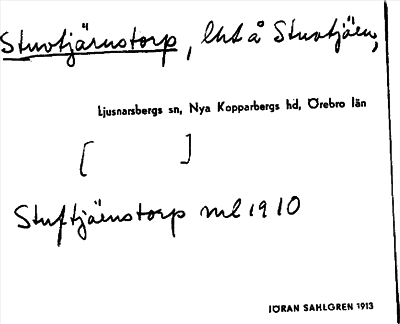 Stuvtjärnstorp, lht å Stuvtjärn,
Ljusnarsbergs sn, Nya Kopparbergs hd, Örebro län
[ ]
Stuftjärnstorp ml 1910
JÖRAN SAHLGREN 1913